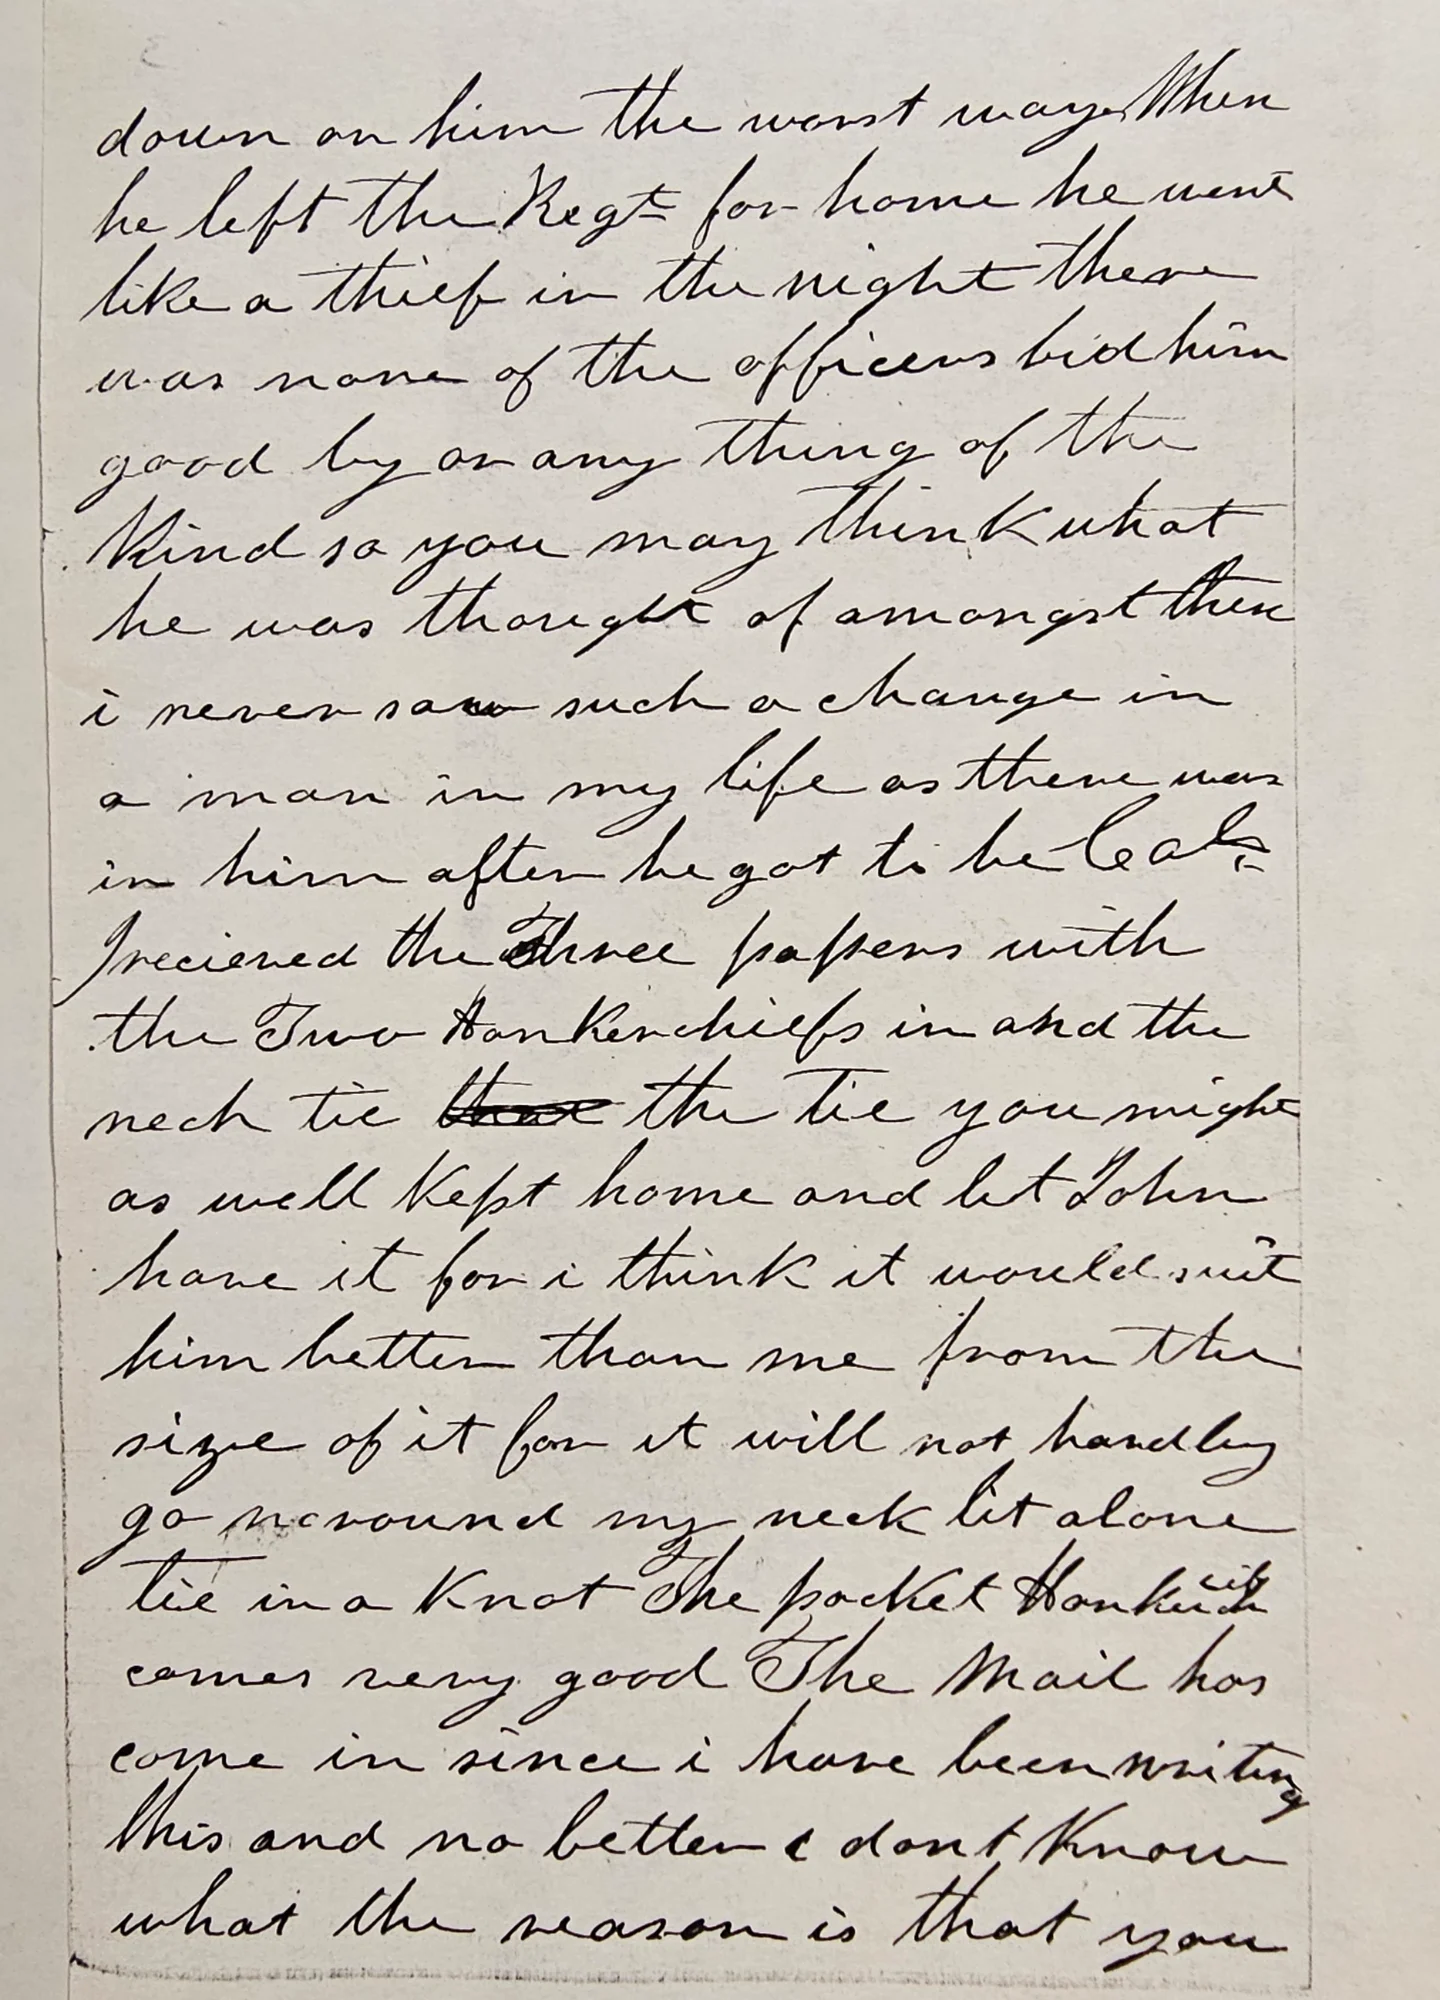 down on him the worst way When
he left the Regt for home he went
like a thief in the night there
was none of the officers bid him
good by or any thing of the
Kind so you may think what
he was thought of amongst them
i never saw such a change in
a man in my life as there was
in him after he got to be Col
I recieved the Three papers with
the Two Hankerchiefs in and the
neck tie the tie you might
as well Kept home and let John
have it for i think it would suit
him better than me from the
size of it for it will not hardley
go around my neck let alone
tie in a Knot The pocket
comes very good The Mail has
come in since i have been writing
this and no better i dont Know
what the reason is that you